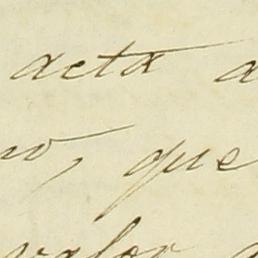 acta a
no, que
valor